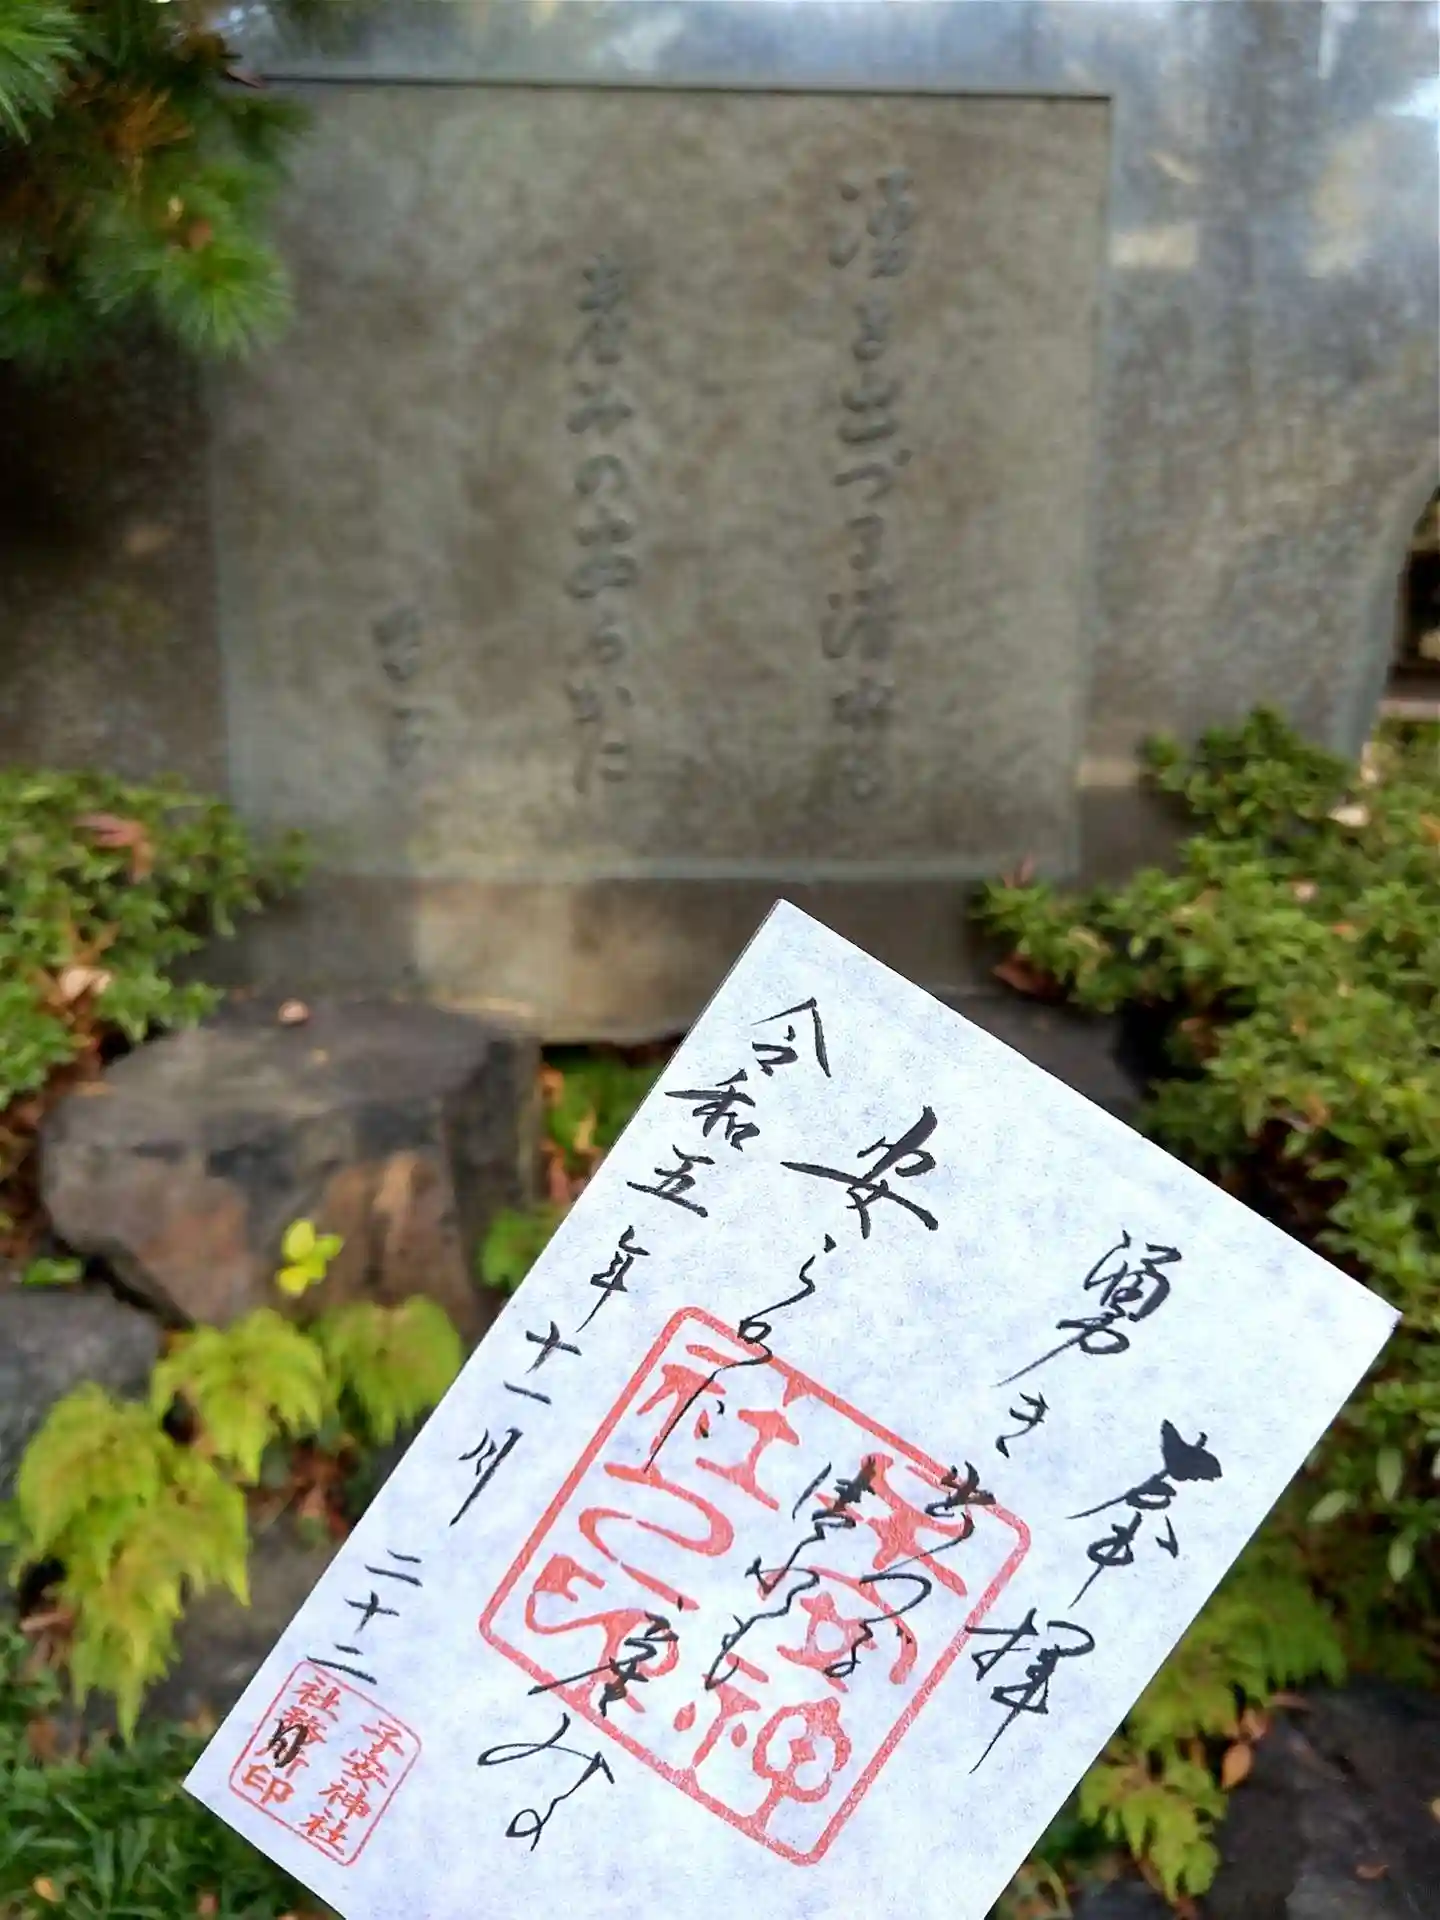 湧き出づる清水も
産みの安らかに
奉拝
湧き
出づる
清水も
産みの
安らかに
令和五年十一月二十二日
子安神社
社務所印
子安神
社之璽